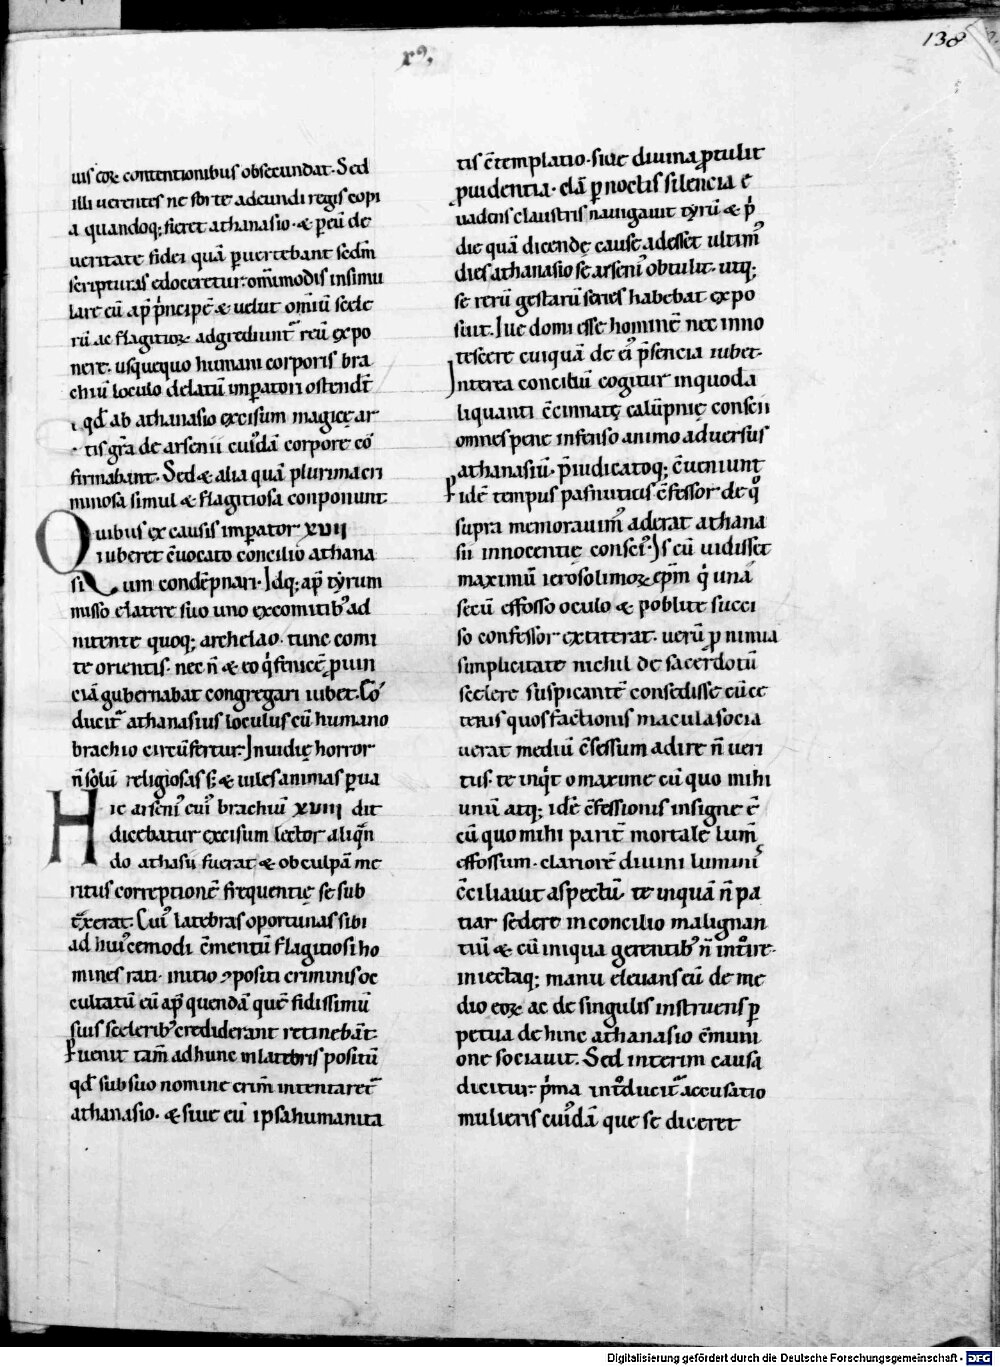 xº,
138
uis eoꝝ contentionibus obsecundat. Sed
illi uerentes ne sorte adeundi regis copi
a quandoq; fieret athanasio. & p eū de
ueritate fidei quā puertebant sedm̄
scripturas edoceretur: om̄imodis insimu
lare eū ap p̄ncipē & uelut om̄iū scele
rū ac flagitioꝝ adgrediunt᷑ reū expo
nere. usquequo humani corporis bra
chiū loculo delatū impatori ostendt̄
qd̄ ab athanasio excisum magicę ar
tis gr̄a de arsenii cuiꝰdā corpore cō
firmabant. Sed & alia quā plurima cri
minosa simul & flagitiosa conponunt
Quibus ex causis impator XVII
iuberet c̄uocato concilio athana
siū condēpnari. Idq; ap tyrum
misso elatere suo uno ex comitibꝰ ad
nitente quoq; archelao. tunc comi
te orientis. nec n̄ & eo q̇ fenicē puin
ciā gubernabat congregari iubet. Cō
ducit᷑ athanasius loculus cū humano
brachio circūfertur. Inuidię horror
n̄ solū religiosas sʒ & uiles animas pua
Hic arseniꝰ cuiꝰ brachiū XVIII dit
dicebatur excisum lector aliqn̄
do athasii fuerat & ob culpā me
ritus correptionē frequentię se sub
t̄xerat. Cuiꝰ latebras oportunas sibi
ad huiꝰcemodi c̄mentū flagitiosi ho
mines rati. initio ꝓpositi criminis oc
cultatū eū ap quendā quē fidissimū
suis sceleribꝰ crediderant retinebāt.
Puenit tam̄ ad hunc in latebris positū
qd̄ sub suo nomine crim̄ intentaret᷑
athanasio. & siue eū ipsa humanita
tis c̄templatio. siue diuina ꝓtulit
ꝓuidentia. clā p noctis silencia e
uadens claustris nauigauit tyrū & p̄
die quā dicendę cause adesset ultimꝰ
dies athanasio se arseniꝰ obtulit. utq;
se rerū gestarū series habebat expo
suit. Iue domi esse hominē nec inno
tescere cuiquā de eiꝰ p̄sencia iubet.
Interea conciliū cogitur in quo da
liquanti c̄cinnatę calūpnię conscii
omnes pene infenso animo aduersus
athanasiū. p̄iudicatoq; c̄ueniunt
P idē tempus pafnuticus c̄fessor de q̊
supra memorauimꝰ aderat athana
sii innocentię consciꝰ. Is cū uidisset
maximū ierosolimoꝝ ep̄m q̇ unā
secū effosso oculo & poblite succi
so confessor extiterat. uerū p nimia
simplicitate nichil de sacerdotū
scelere suspicantē consedisse cū ce
teris quos factionis macula socia
uerat mediū c̄sessum adire n̄ ueri
tus. te inq̇t o maxime cū quo mihi
unū atq; idē c̄fessionis insigne ē
cū quo mihi parit̄ mortale lum̄
effossum. clariorē diuini luminis
c̄ciliauit aspectū. te inquā n̄ pa
tiar sedere in concilio malignan
tiū & cū iniqua gerentibꝰ n̄ int̊ire.
iniectaq; manu eleuans eū de me
dio eoꝝ ac de singulis instruens p
petua de hinc athanasio c̄muni
one sociauit. Sed interim causa
dicitur. p̄ma int̊ducit᷑ accusatio
mulieris cuiꝰdā que se diceret
Digitalisierung gefördert durch die Deutsche Forschungsgemeinschaft - DFG